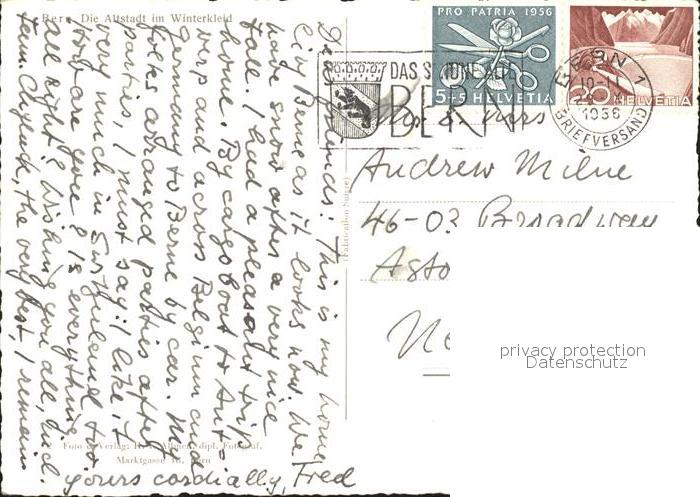 Bern. Die Altstadt im Winterkleid
PRO PATRIA 1956
5+5 HELVETIA
20 HELVETIA
DAS SCHÖNE ALTE
BERN
BERN 1
1956
BRIEFVERSAND
Mr & Mrs
Andrew Milne
46-03 Broadway
Asto
Ne
privacy protection
Datenschutz
(Fabrication Suisse)
Dear friends: This is my home
City Berne as it looks now. We
have snow after a very nice
fall. I had a pleasant trip
home. By cargo boat to Ant-
werp and across Belgium and
Germany to Berne by car. My
folks arranged parties after
parties, I must say: I like it
very much in Switzerland too.
How are you & is everything
all right? Wishing you all, incl.
the very best, I remain
yours cordially, Fred
Foto & Verlag: dipl. Fotograf,
Marktgasse Bern